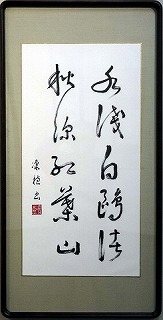 水淺白鷗
秋深紅葉山
書